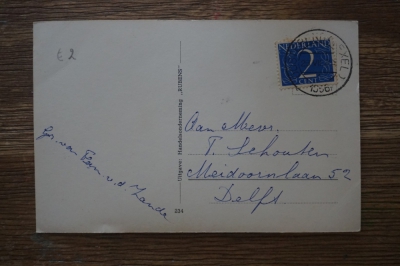 € 2
NEDERLAND
2
CENT
1956
Uitgave: Handelsonderneming „RUBENS”
224
Aan Mevr.
T. Schouten
Meidoornlaan 52
Delft
Gr. van Fam v.d. Zande